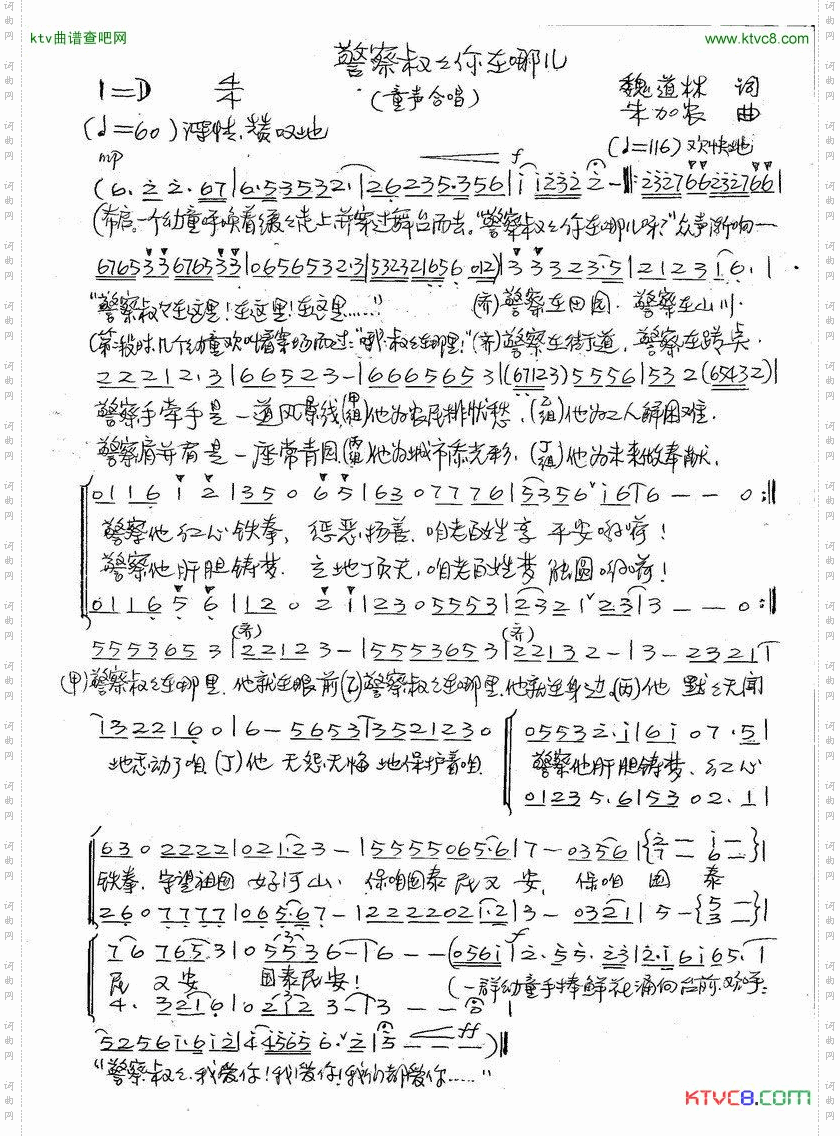 ktv曲谱查吧网
www.ktvc8.com
警察叔々你在哪儿
(童声合唱)
1=D 4/4
魏道林 词
朱加农 曲
(♩=60)深情、赞叹地
(♩=116)欢快地
mp f
(6. 2 2. 67|6.53532.|26235.356|i i232 2-‖:232766232766|
(幕启。一个幼童呼唤着缓々走上前穿过舞台而去。“警察叔々你在哪儿呀?”众声渐响一
676533676533|0656532·3|5323216 56 012)|3 3 323·5|21231 6.|
“警察叔々在这里!在这里!在这里……” (齐)警察在田园.警察在山川.
(第二段时几个幼童欢叫着穿场而过:“哪:叔々在哪里:”(齐)警察在街道,警察在路口.
22212.3|66523-|6666 5653|(67123)5556|532(65432)|
警察手牵手是一道风景线,(甲组)他为农民排忧愁,(乙组)他为工人解困难.
警察肩并肩是一座常青园.(丙组)他为城市添光彩.(丁组)他为未来做奉献.
0116 i 2|350 6 5|6307776|5356 i6|6--0:‖
警察他红心铁拳,惩恶扬善.咱老百姓享平安啊嗬!
警察他肝胆铸梦.立地顶天,咱老百姓梦能圆啊嗬!
0116 5 6|120 2 i|2305553|2321 2.3|3--0:‖
(齐) (齐)
5553653|22123-|5553653|22132-|3-2321|
(甲)警察叔々在哪里.他就在眼前(乙)警察叔々在哪里,他就在身边.(丙)他 默々无闻
1322160|6-5653|3521230
地感动了咱.(丁)他 无怨无悔地保护着咱.
05532.i|6i07.5|
警察他肝胆铸�o.红心
01235.6|5302.1|
6302222|02123-|5555065·6|7-0356|
铁拳.守望祖国好河山.保咱国泰民又安,保咱国泰
2607777|065·67-|2222021·2|3-0321|5-
767 65.3|055366|6--(056i|2.55.23|2.i6i65.|
民又安 国泰民安! (一群幼童手捧鲜花涌向台前.欢呼:
4.3216|0212 3-|3--
5256i·6i2|44565 6.2|5---)‖
ff
“警察叔々.我爱你!我爱你!我们都爱你……”
KTVC8.COM